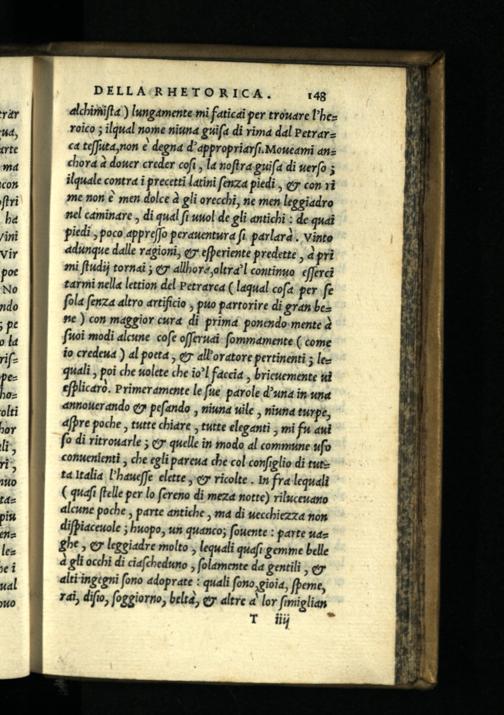 DELLA RHETORICA. 148
alchimista) lungamente mi faticai per trouare l'he=
roico; ilqual nome niuna guisa di rima dal Petrar=
ca tessuta, non è degna d'appropriarsi. Moueami an=
chora à douer creder cosi, la nostra guisa di uerso;
ilquale contra i precetti latini senza piedi, & con ri
me non è men dolce à gli orecchi, ne men leggiadro
nel caminare, di qual si uuol de gli antichi: de quai
piedi, poco appresso perauentura si parlarà. Vinto
adunque dalle ragioni, & esperiente predette, à pri
mi studij tornai; & allhora, oltra'l continuo esserci
tarmi nella lettion del Petrarca (laqual cosa per se
sola senza altro artificio, puo partorire di gran be=
ne) con maggior cura di prima ponendo mente à
suoi modi alcune cose osseruai sommamente (come
io credeua) al poeta, & all'oratore pertinenti; le=
quali, poi che uolete che io'l faccia, brieuemente ui
esplicarò. Primeramente le sue parole d'una in una
annouerando & pesando, niuna uile, niuna turpe,
aspre poche, tutte chiare, tutte eleganti, mi fu aui
so di ritrouarle; & quelle in modo al commune uso
conuenienti, che egli pareua che col consiglio di tut=
ta Italia l'hauesse elette, & ricolte. In fra lequali
(quasi stelle per lo sereno di meza notte) riluceuano
alcune poche, parte antiche, ma di uecchiezza non
dispiaceuole; huopo, un quanco; souente: parte ua=
ghe, & leggiadre molto, lequali quasi gemme belle
à gli occhi di ciascheduno, solamente da gentili, &
alti ingegni sono adoprate: quali sono, gioia, speme,
rai, disio, soggiorno, beltà, & altre à lor simiglian
T iiij